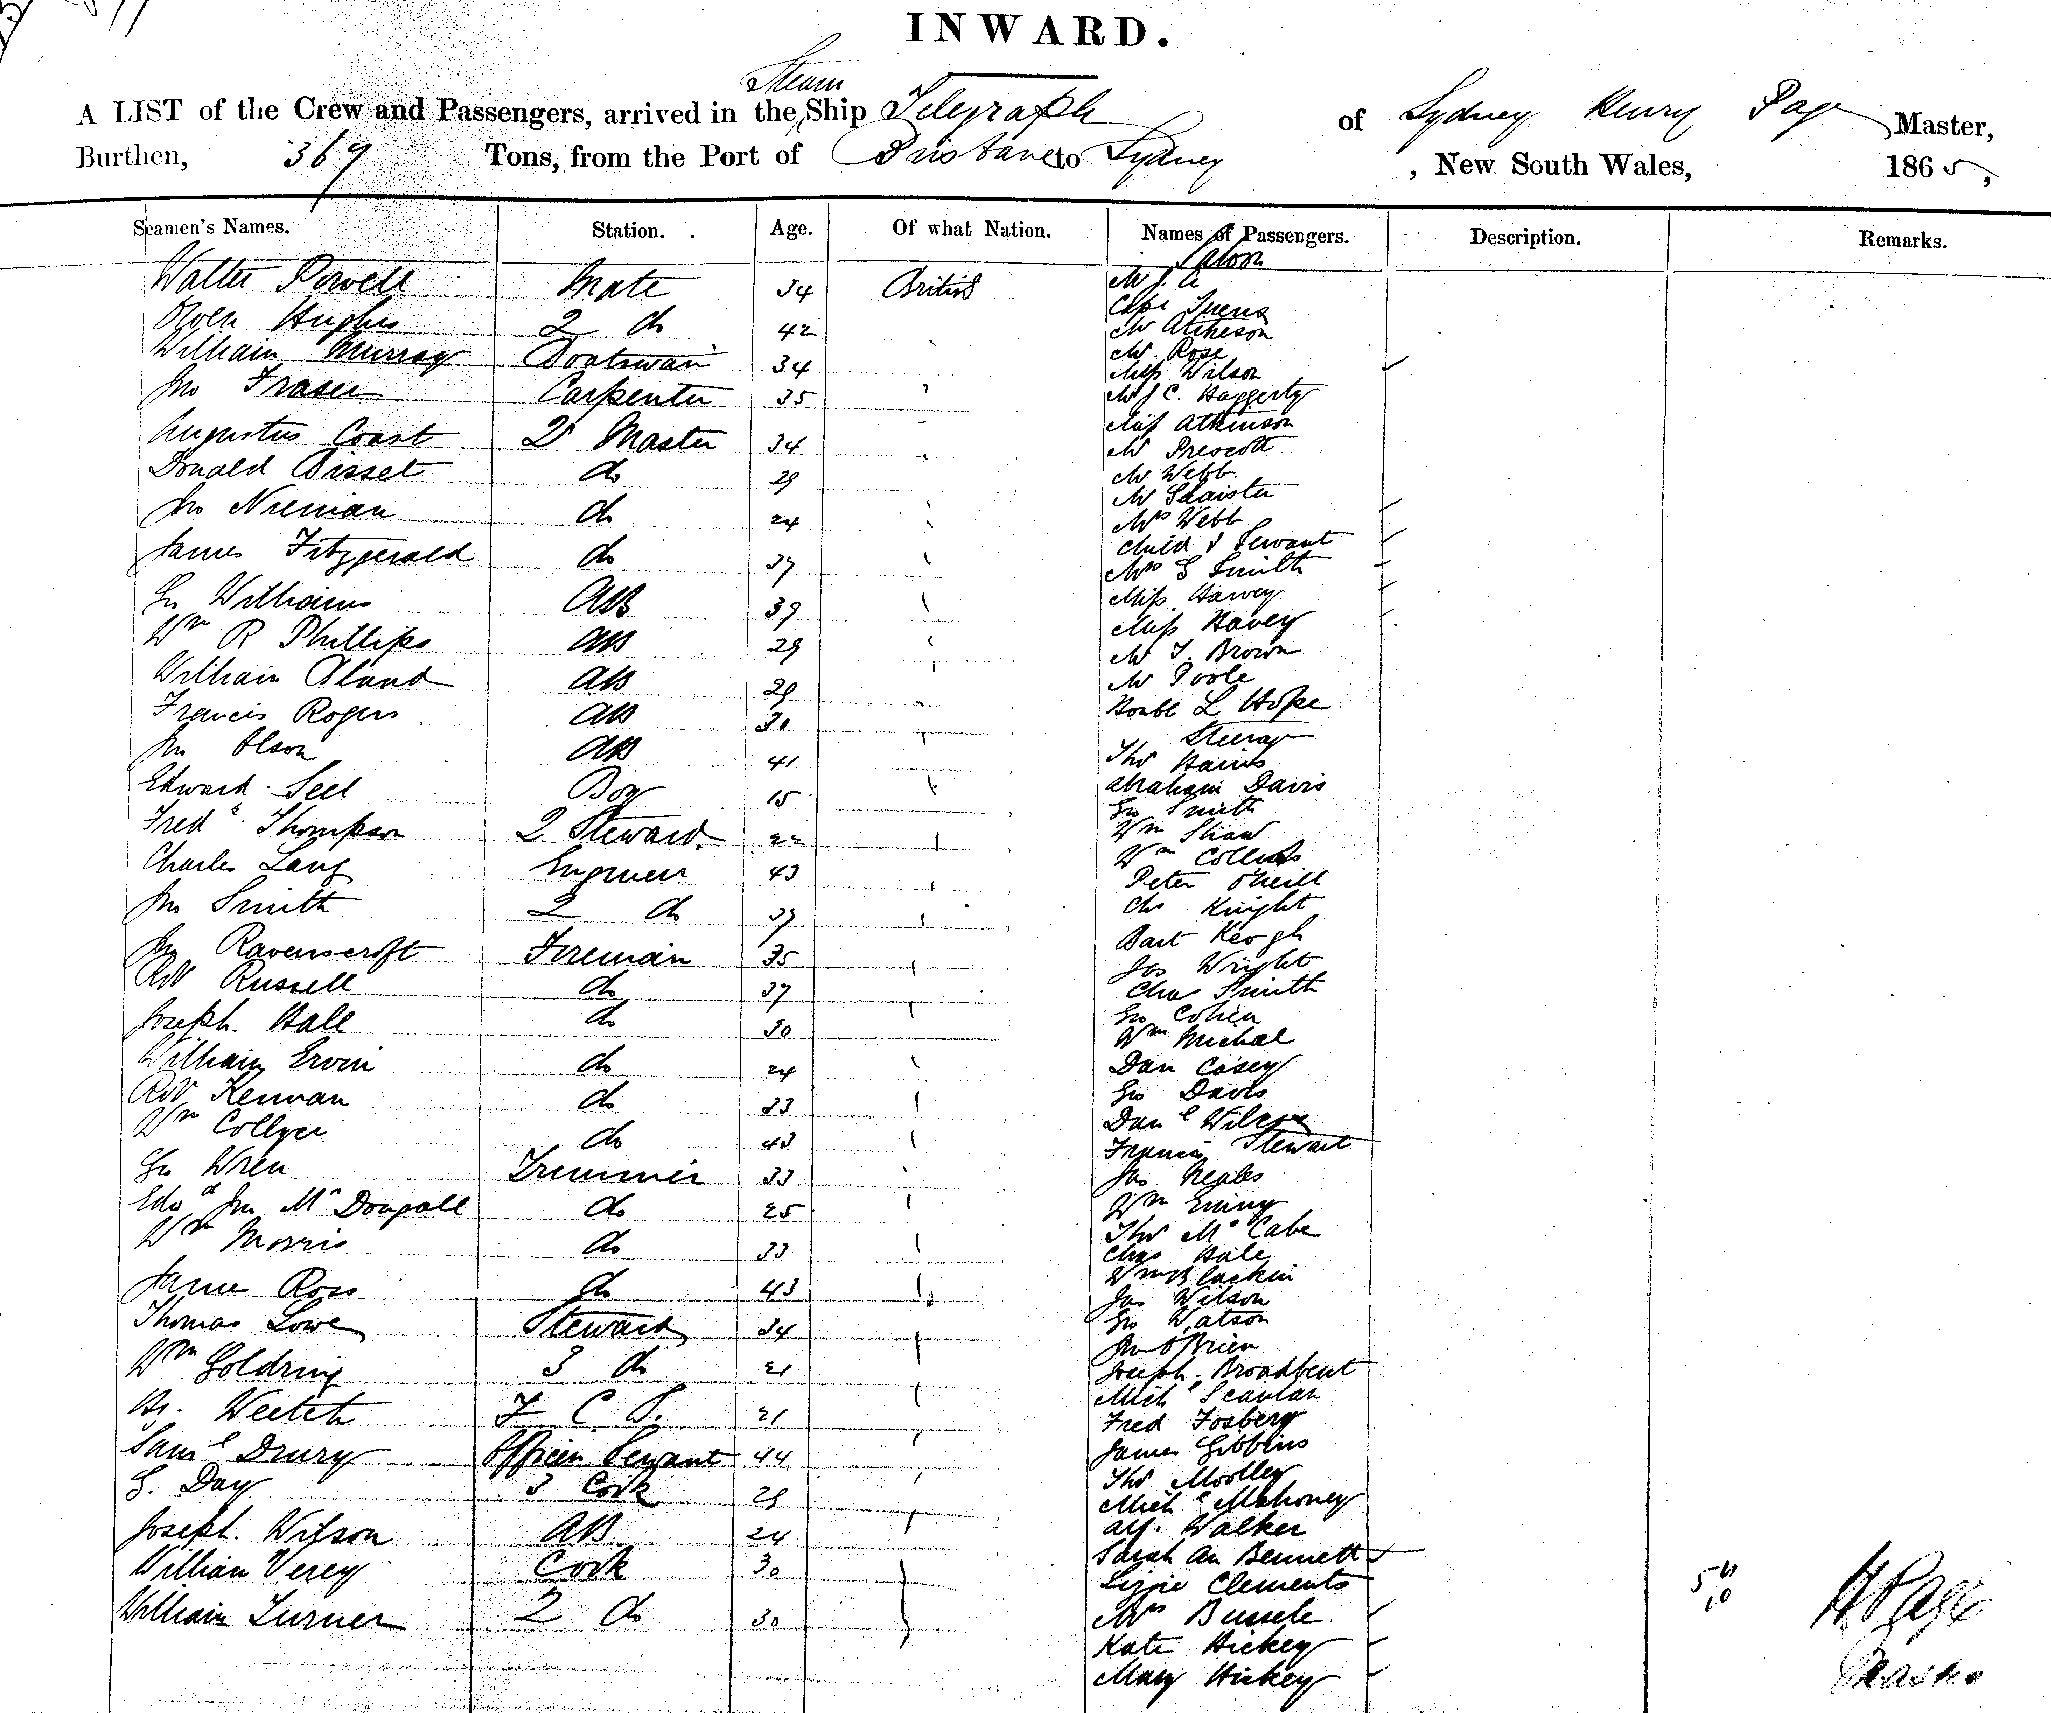 INWARD.
Steam
A LIST of the Crew and Passengers, arrived in the Ship Telegraph of Sydney Henry Page Master,
Burthen, 369 Tons, from the Port of Brisbane to Sydney , New South Wales, 1865,
Seamen's Names. Station. Age. Of what Nation. Names of Passengers. Description. Remarks.
Saloon
Walter Powell Mate 34 British
Owen Hughes 2 do 42
William Murray Boatswain 34
Jno Fraser Carpenter 35
Augustus Coast Qr Master 34
Donald Bisset do 29
Jno Nieman do 24
James Fitzgerald do 37
Geo Williams AB 39
Wm R Phillips AB 29
William Aland AB 29
Francis Rogers AB 30
Jno Olson AB 41
Edward Seel Boy 15
Fredk Thompson 2 Steward 22
Charles Lang Engineer 43
Jno Smith 2 do 37
Jno Ravenscroft Fireman 35
Robt Russell do 37
Joseph Hall do 30
William Ervin do 24
Robt Kenwan do 33
Wm Collyer do 43
Geo Wren Trimmer 33
Edwd Jno McDougall do 25
Wm Morris do 33
James Ross do 43
Thomas Lowe Steward 34
Wm Goldring 3 do 21
Hy. Veitch F C S. 21
Saml Drury Officers Servant 44
G. Day 3 Cook 28
Joseph Wilson AB 24
William Verey Cook 30
William Turner 2 do 30
Capt
Mr Atcheson
Mr Rose
Miss Wilson
Mr J C. Haggerty
Miss Atkinson
Mr Prescott
Mr Webb
Mr
Mrs Webb
Child & Servant
Mrs S Smith
Miss Harvey
Miss Havey
Mr T. Brown
Mr Poole
Honble L Hope
Steerage
Thos Hains
Abraham Davis
Geo Smith
Wm Shaw
Wm Collins
Peter ONeill
Chs Knight
Bart Keogh
Jas Wright
Chas Smith
Geo Cohen
Wm Michal
Dan Casey
Geo Davis
Danl Wilson
Francis Stewart
Jas Neales
Wm
Thos McCabe
Chas Hale
Wm Blackin
Jas Wilson
Geo Watson
Jno OBrien
Joseph Broadbent
Michl Scanlan
Fred Fosberg
James Gibbins
Thos
Michl Mahoney
Alf. Walker
Sarah An Bennett
Lizzie Clements
Mrs Bussele
Kate Hickey
Mary Hickey
H Page
Master